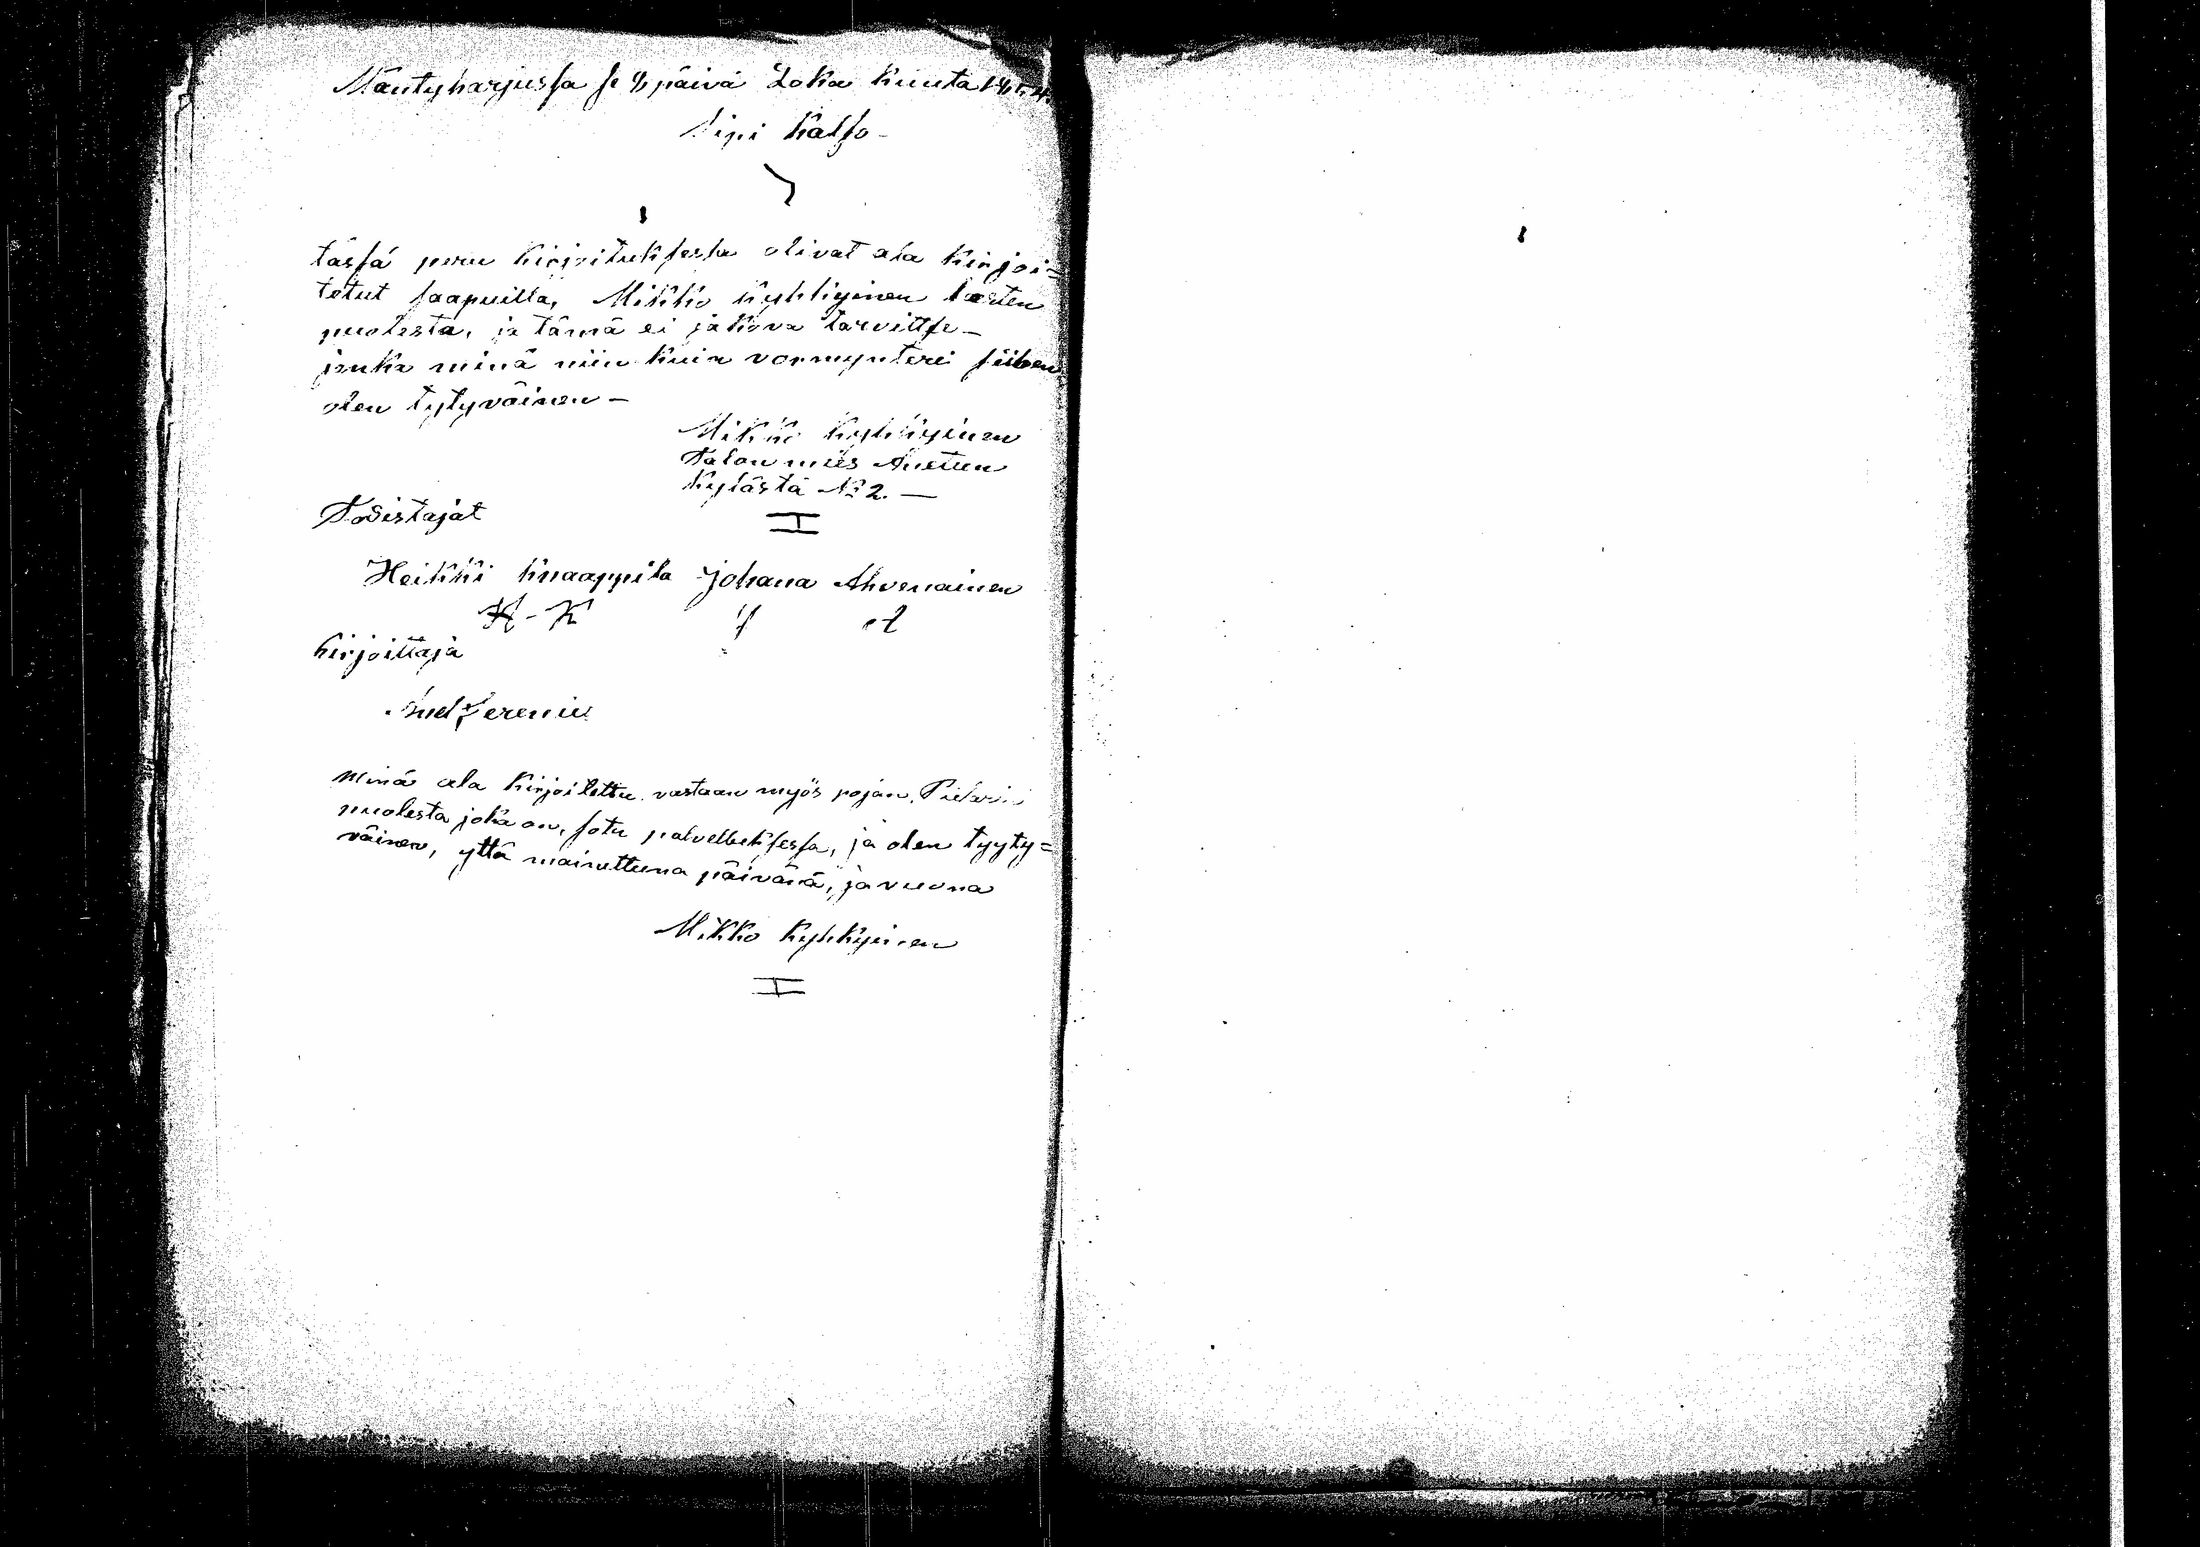 Mäntyharjussa se päivä Loka kuuta
Sipi Katso-
tässä peru kirjoituksessa olivat ala kirjoi=
tetut saapuilla, Mikko Kyhkyinen lasten
puolesta, ja tämä ei jakova tarvittse-
jonka minä niin kuin vormynteri siihen
olen tytyväinen-
Mikko Kyhkyinen
Talon mies
kylästä No 2. —
Todistajat
Heikki Knaappila Johana Ahvenainen
H-K J A
kirjoittaja
minä ala kirjoitettu vastaan myös pojan. Pietarin
puolesta joka on, sota palvelluksessa, ja olen tyyty=
väinen, yllä mainuttuna päivänä, ja vuonna
Mikko Kyhkyinen